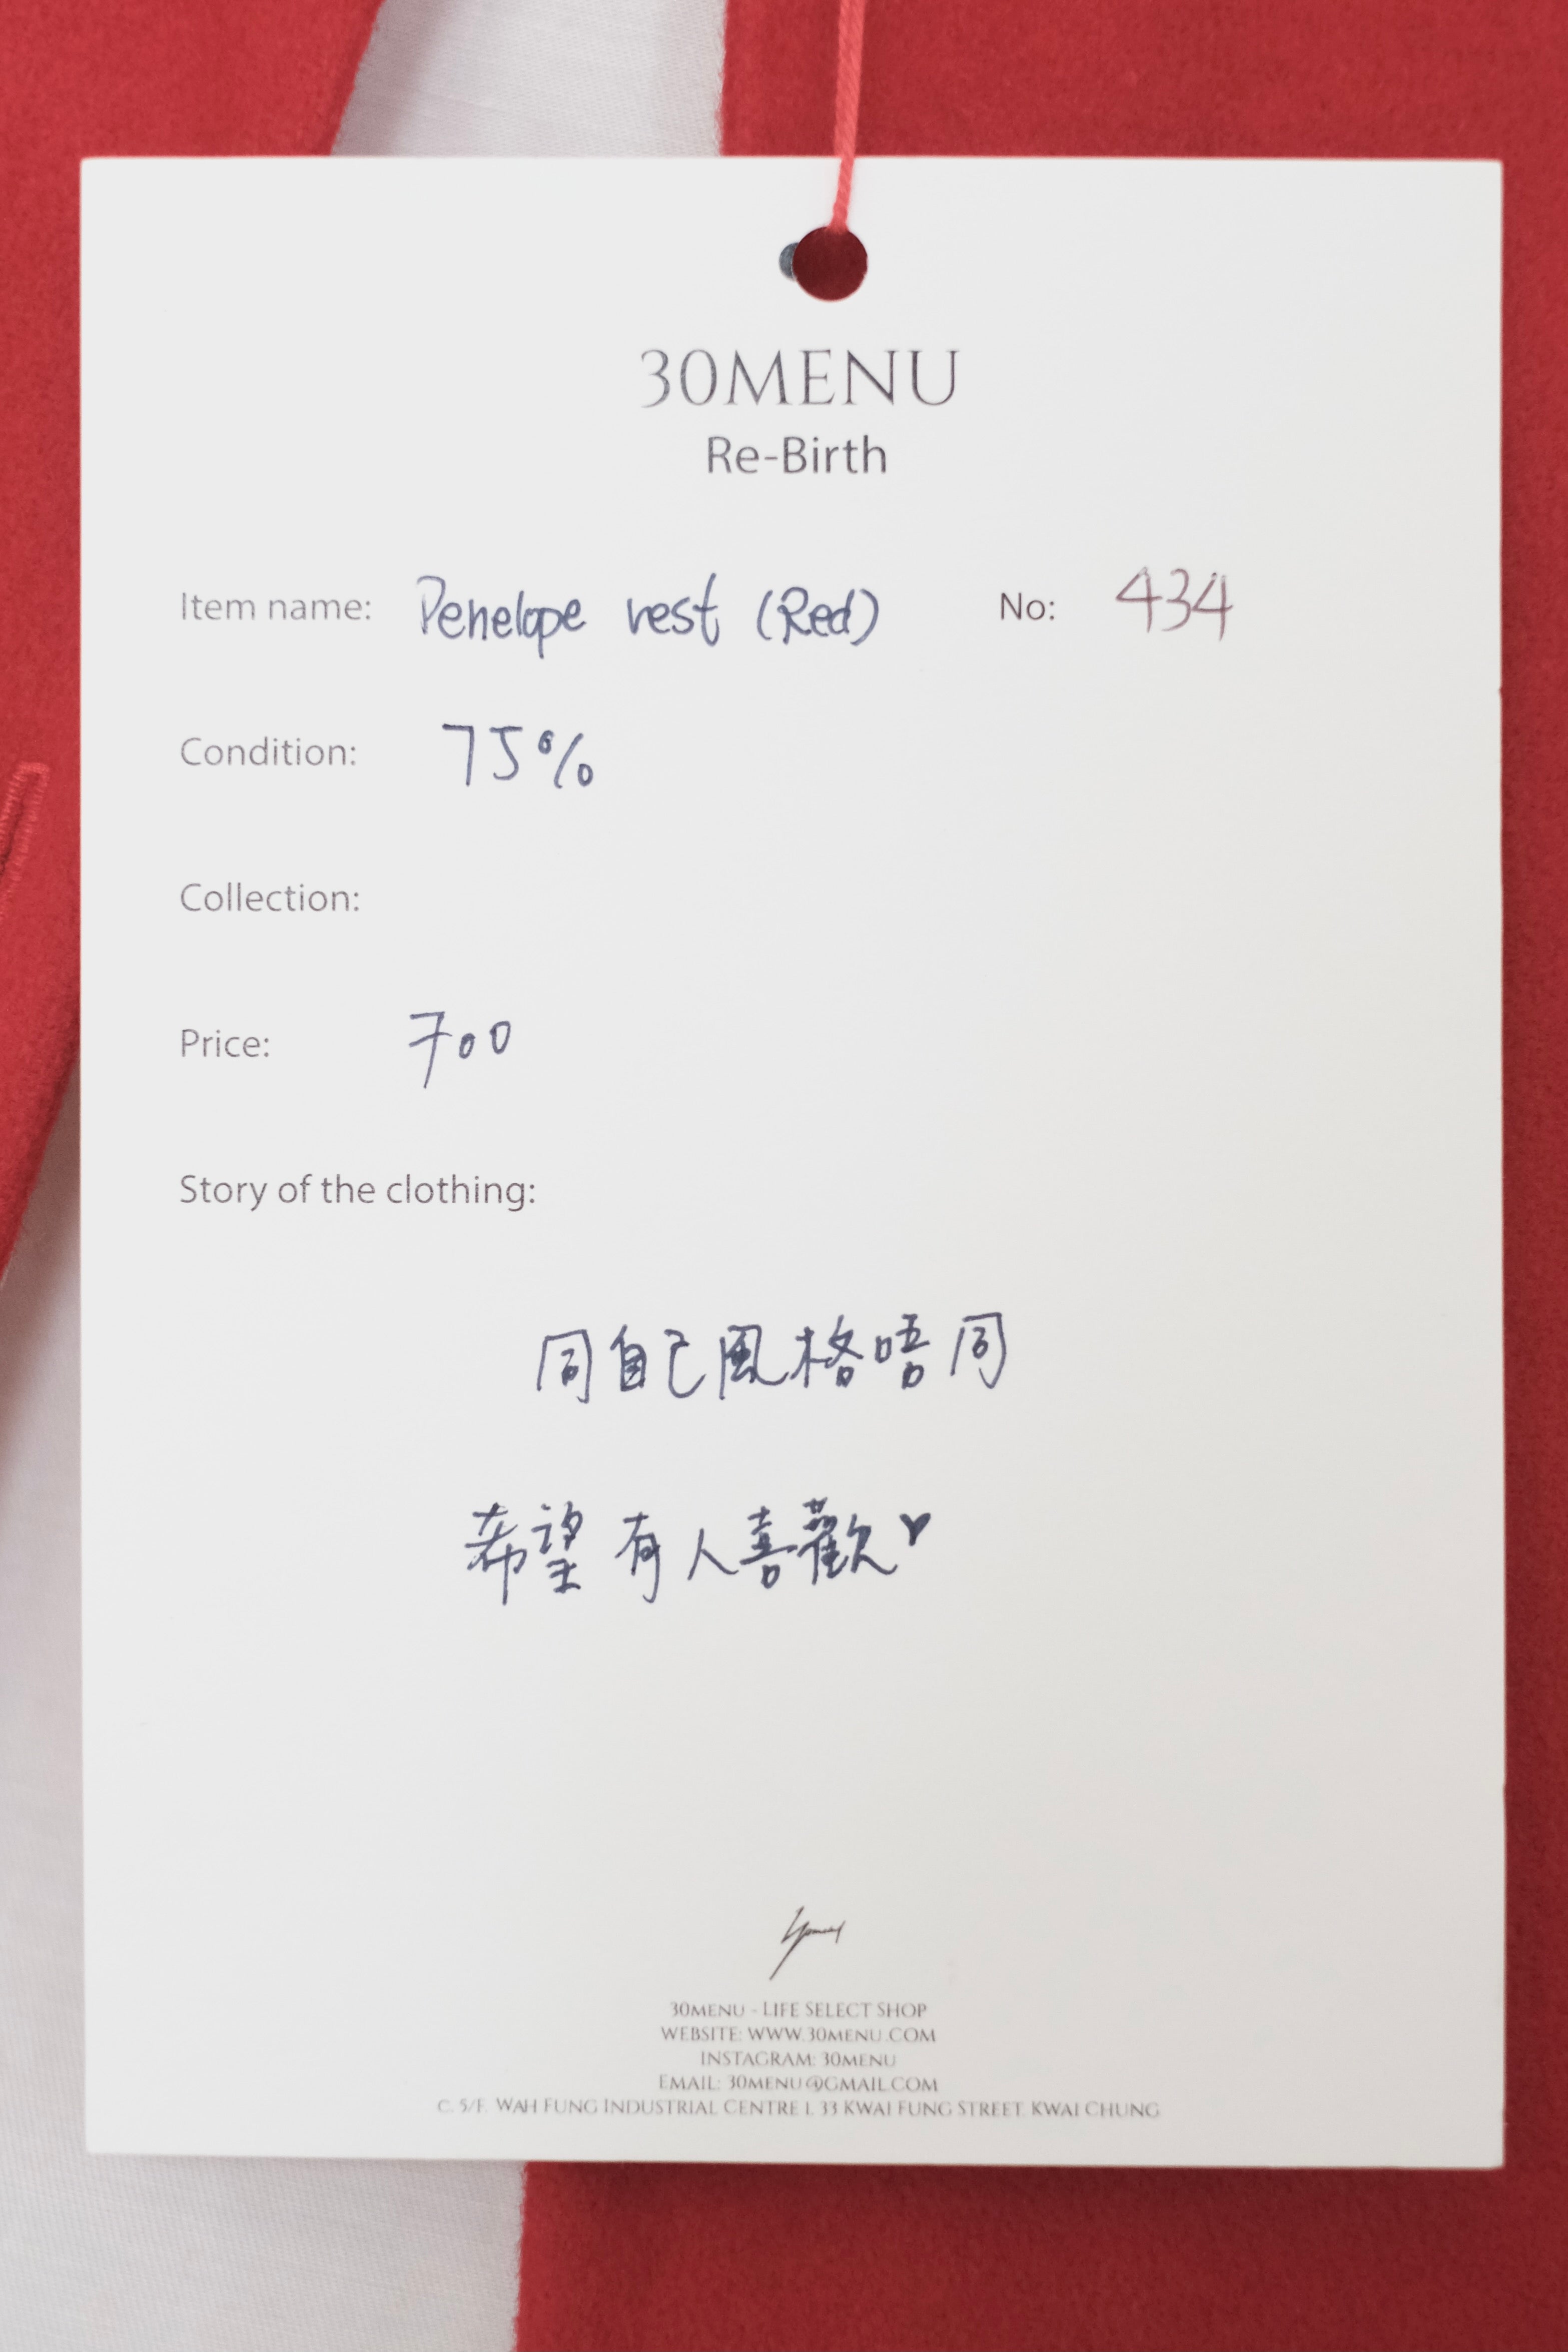 30MENU
Re-Birth
Item name: Penelope vest (Red) No: 434
Condition: 75%
Collection:
Price: 700
Story of the clothing:
同自己風格唔同
希望有人喜歡♥
30MENU - LIFE SELECT SHOP
WEBSITE: WWW.30MENU.COM
INSTAGRAM: 30MENU
EMAIL: 30MENU@GMAIL.COM
C, 5/F, WAH FUNG INDUSTRIAL CENTRE I, 33 KWAI FUNG STREET, KWAI CHUNG